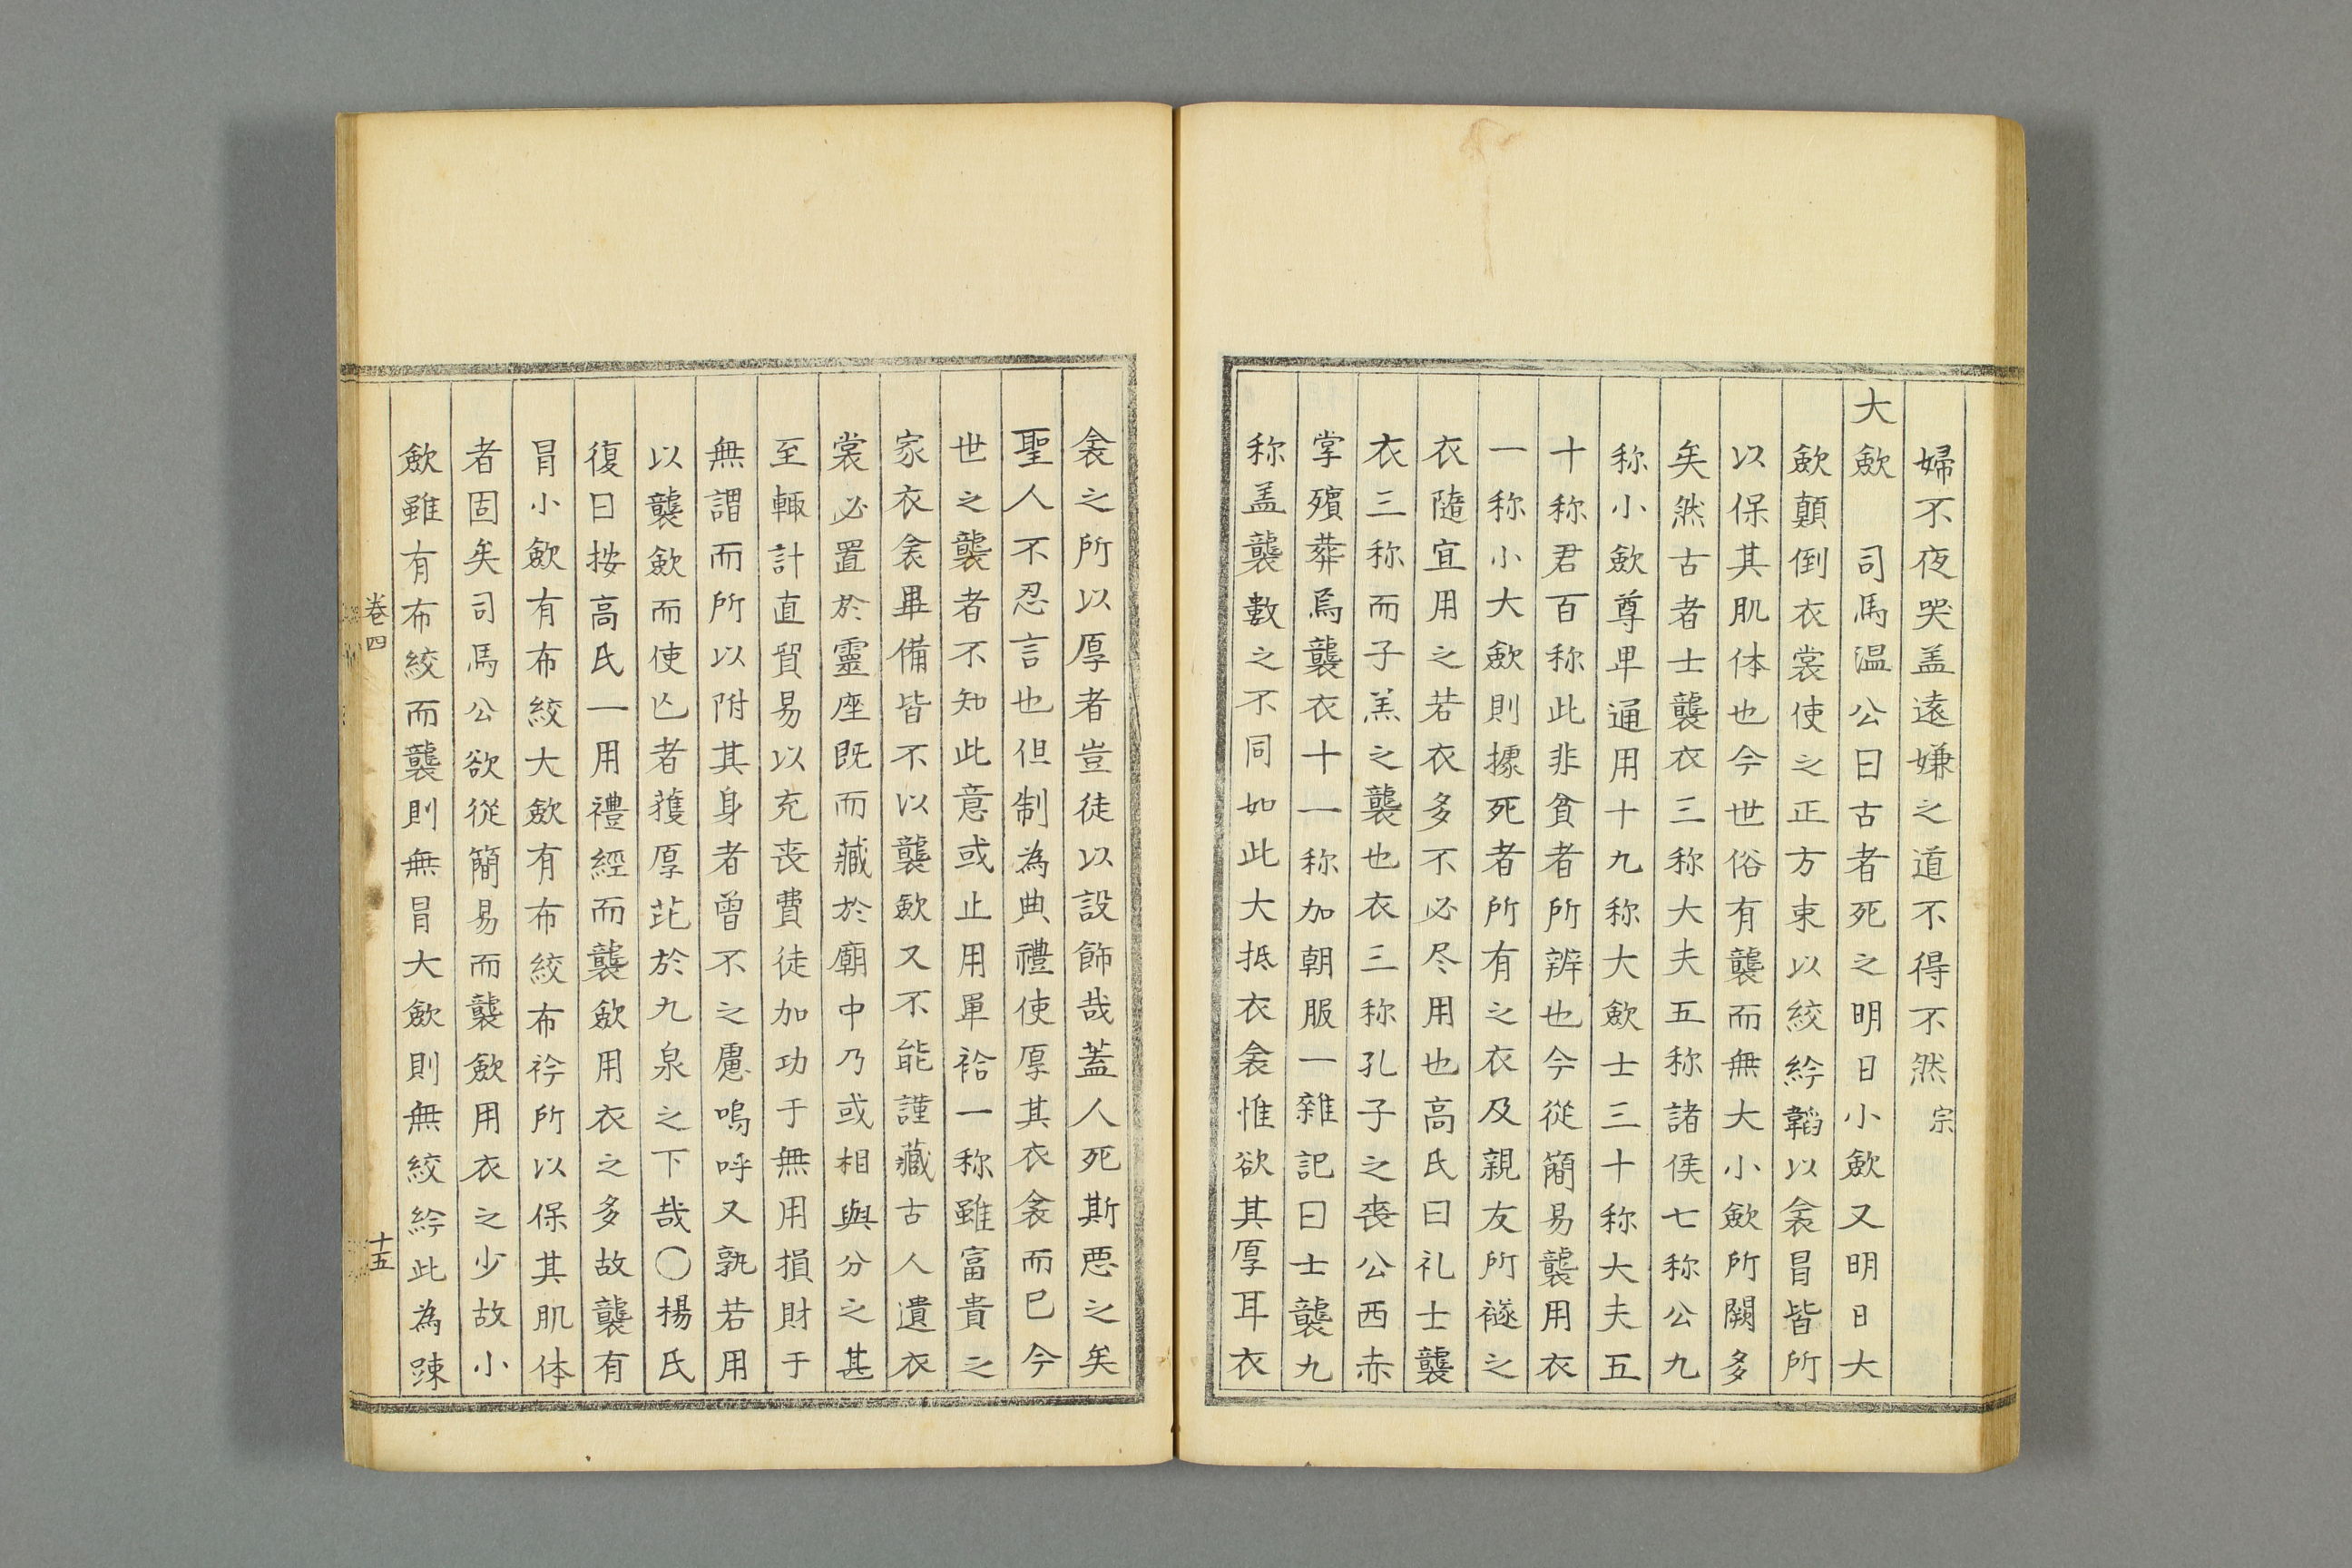 婦不夜哭盖遠嫌之道不得不然 宗
大歛 司馬温公曰古者死之明日小歛又明日大
歛顛倒衣裳使之正方束以絞紟韜以衾冒皆所
以保其肌体也今世俗有襲而無大小歛所闕多
矣然古者士襲衣三称大夫五称諸侯七称公九
称小歛尊卑通用十九称大歛士三十称大夫五
十称君百称此非貧者所辨也今從簡易襲用衣
一称小大歛則據死者所有之衣及親友所襚之
衣隨宜用之若衣多不必尽用也高氏曰礼士襲
衣三称而子羔之襲也衣三称孔子之喪公西赤
掌殯葬焉襲衣十一称加朝服一雜記曰士襲九
称盖襲數之不同如此大抵衣衾惟欲其厚耳衣
衾之所以厚者豈徒以設飾哉蓋人死斯悪之矣
聖人不忍言也但制為典禮使厚其衣衾而已今
世之襲者不知此意或止用單袷一称雖富貴之
家衣衾畢備皆不以襲歛又不能謹藏古人遺衣
裳必置於靈座既而藏於廟中乃或相與分之甚
至輙計直貿易以充丧費徒加功于無用損財于
無謂而所以附其身者曾不之慮嗚呼又孰若用
以襲歛而使亡者獲厚芘於九泉之下哉〇楊氏
復曰按高氏一用禮經而襲歛用衣之多故襲有
冒小歛有布絞大歛有布絞布衿所以保其肌体
者固矣司馬公欲從簡易而襲歛用衣之少故小
歛雖有布絞而襲則無冒大歛則無絞紟此為踈
卷四 十五